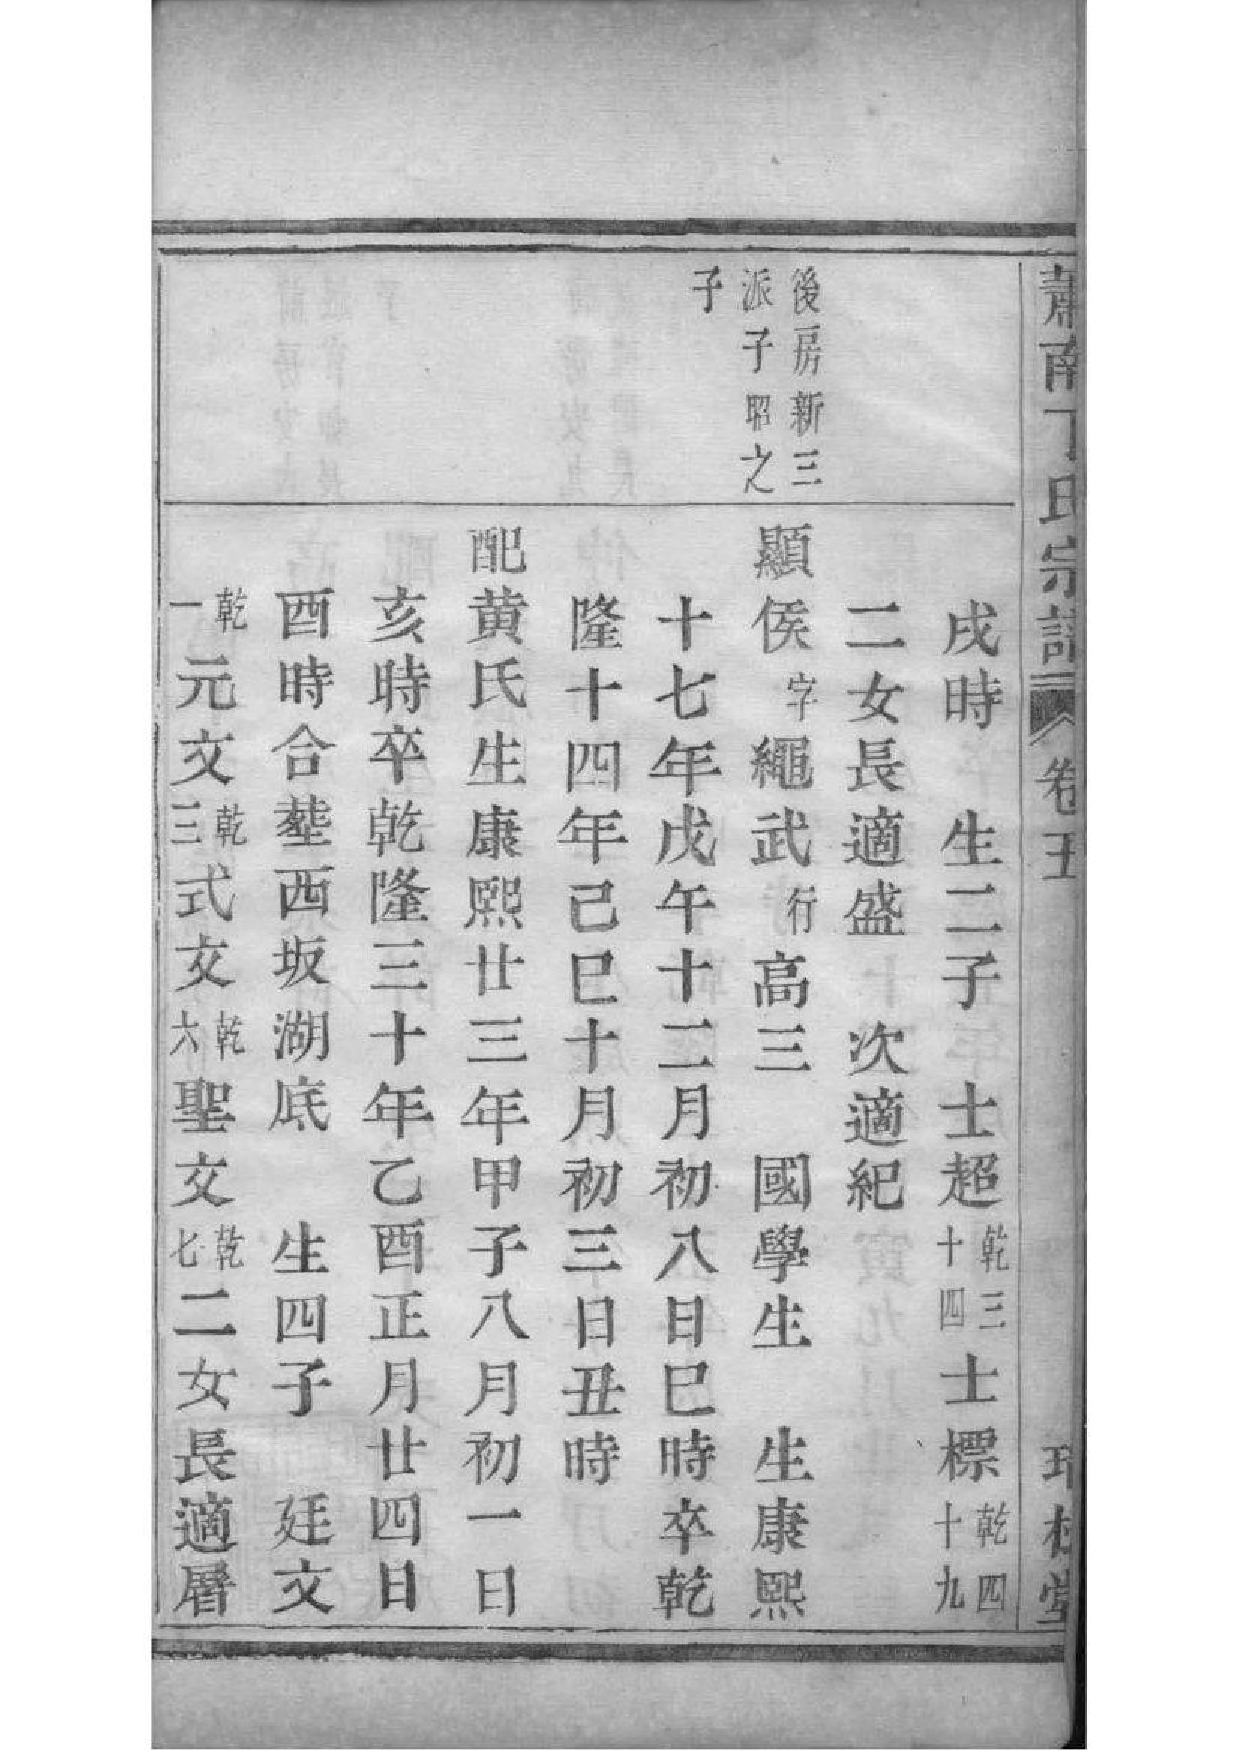 蕭南丁氏宗譜 卷五
戌時 生二子 士超乾三十四士標乾四十九
二女長適盛 次適紀
後房新三
派子昭之
子
顯侯字繩武行高三 國學生 生康熙
十七年戊午十二月初八日巳時卒乾
隆十四年己巳十月初三日丑時
配黄氏生康熙廿三年甲子八月初一日
亥時卒乾隆三十年乙酉正月廿四日
酉時合塟西坂湖底 生四子 廷文
乾一元文乾三式文乾六聖文乾七二女長適曆